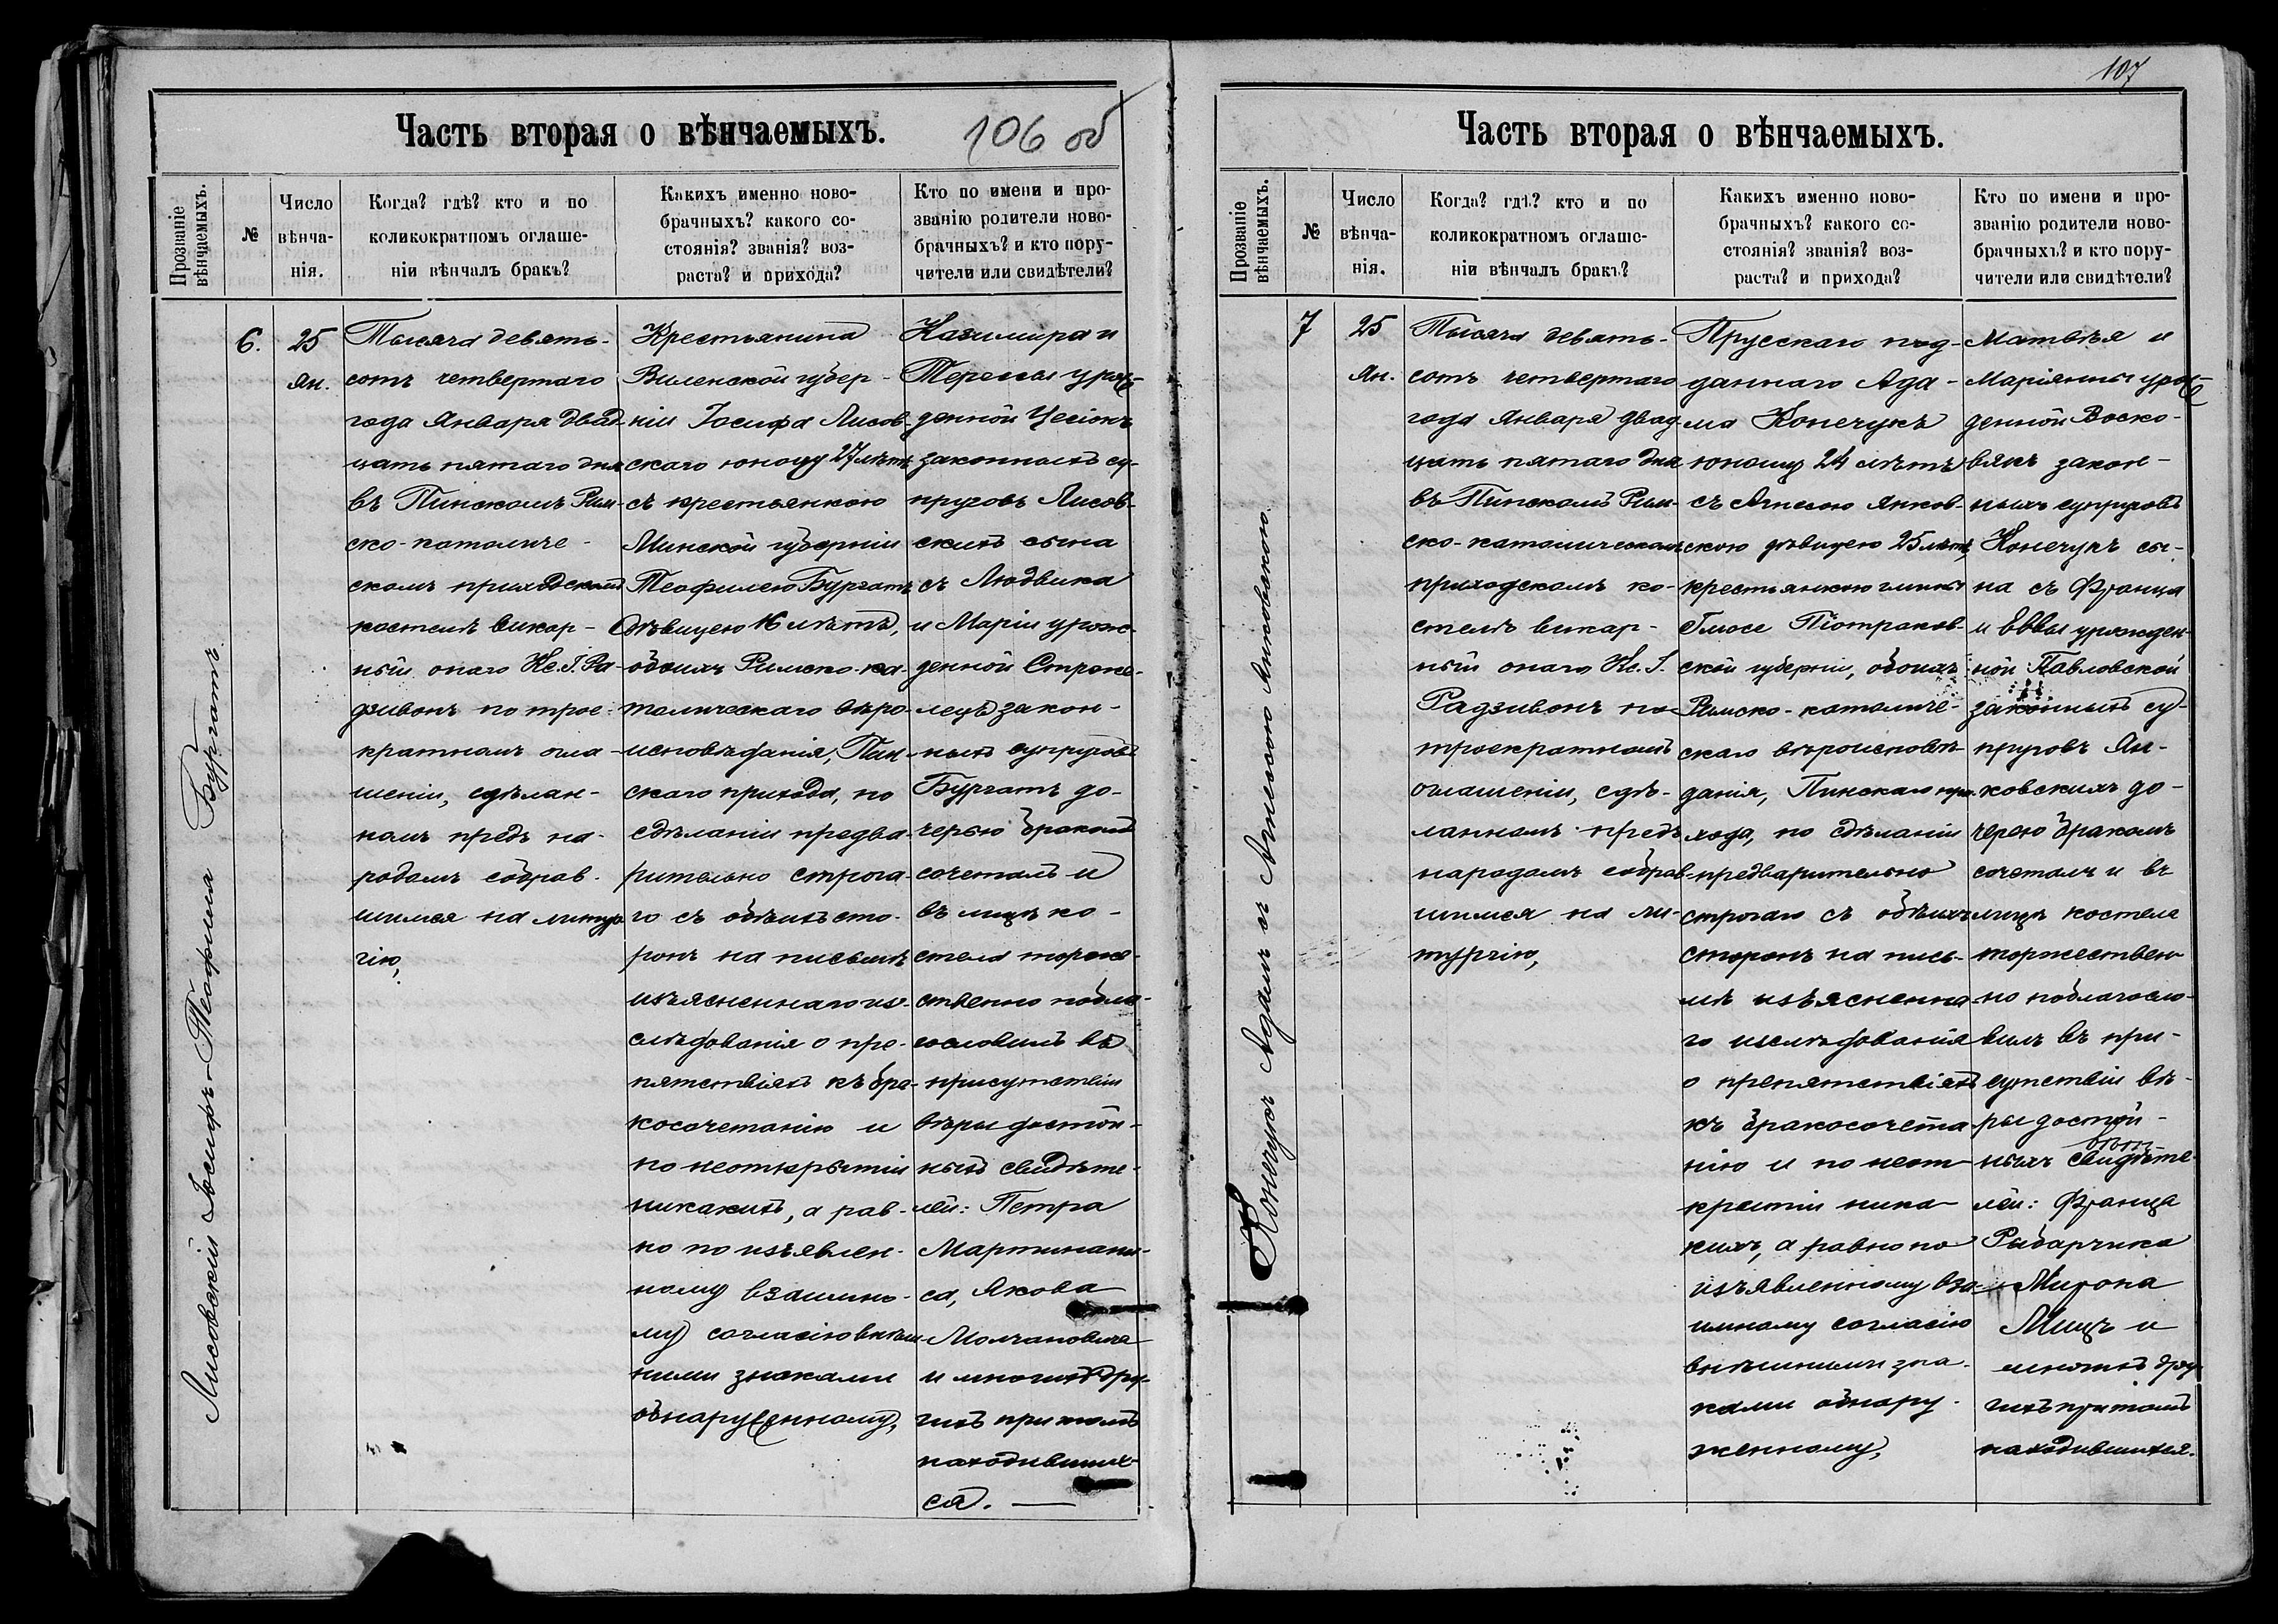 107
Часть вторая о вѣнчаемыхъ.
106 об
Прозваніе
вѣнчаемыхъ.
№
Число
вѣнча-
нія.
Когда? гдѣ? кто и по
коликократномъ оглаше-
ніи вѣнчалъ бракъ?
Какихъ именно ново-
брачныхъ? какого со-
стоянія? званія? воз-
раста? и прихода?
Кто по имени и про-
званію родители ново-
брачныхъ? и кто пору-
чители или свидѣтели?
Лисовскій Іосифъ Теофилія Бургатъ.
6.
25
Ян.
Тысяча девять-
сотъ четвертаго
года Января двад
цать пятаго дня
въ Пинскомъ Рим-
ско-католиче-
скомъ приходскомъ
костелѣ викар-
ный онаго Кс. І. Ра-
дзивонъ по трое-
кратномъ огла-
шеніи, сдѣлан-
номъ предъ на-
родомъ собрав-
шимся на литур-
гію,
Крестьянина
Виленской губер-
ніи Іосифа Лисов-
скаго юношу 27 лѣтъ
съ крестьянкою
Минской губерніи
Теофилею Бургатъ
дѣвицею 16 лѣтъ,
обоихъ Римско-ка-
толическаго вѣро-
исповѣданія, Пин-
скаго прихода, по
сдѣланіи предва-
рительно строга-
го съ обѣихъ сто-
ронъ на письмѣ
изъясненнаго из-
слѣдованія о пре-
пятствіяхъ къ бра-
косочетанію и
по неоткрытіи
никакихъ, а рав-
но по изъявлен-
ному взаимно-
му согласію внѣш-
ними знаками
обнаруженному,
Казимира и
Терессы урож-
денной Цесіонъ
законныхъ су-
пруговъ Лисов-
скихъ сына
съ Людвика
и Маріи урож-
денной Стрже-
лецъ закон-
ныхъ супруговъ
Бургатъ до-
черью бракомъ
сочеталъ и
въ лицѣ ко-
стела торже-
ственно побла-
гословилъ въ
присутствіи
вѣры достой-
ныхъ свидѣте-
лей: Петра
Мартинаки-
са, Якова
Молчановича
и многихъ дру-
гихъ при томъ
находивших-
ся.
Часть вторая о вѣнчаемыхъ.
Прозваніе
вѣнчаемыхъ.
№
Число
вѣнча-
нія.
Когда? гдѣ? кто и по
коликократномъ оглаше-
ніи вѣнчалъ бракъ?
Какихъ именно ново-
брачныхъ? какого со-
стоянія? званія? воз-
раста? и прихода?
Кто по имени и про-
званію родители ново-
брачныхъ? и кто пору-
чители или свидѣтели?
Конечукъ Адамъ съ Агнесою Янковскою.
7
25
Ян.
Тысяча девять-
сотъ четвертаго
года Января двад
цать пятаго дня
въ Пинскомъ Рим-
ско-католическомъ
приходскомъ ко-
стелѣ викар-
ный онаго Кс. І.
Радзивонъ по
троекратномъ
оглашеніи, сдѣ-
ланномъ предъ
народомъ собрав-
шимся на ли-
тургію,
Прусскаго под-
даннаго Ада-
ма Конечукъ
юношу 24 лѣтъ
съ Агнесою Янков-
скою дѣвицею 25 лѣтъ,
крестьянкою гмины
Глюсе Піотраков-
ской губерніи, обоихъ
Римско-католиче-
скаго вѣроисповѣ-
данія, Пинскаго при-
хода, по сдѣланіи
предварительно
строгаго съ обѣихъ
сторонъ на пись-
мѣ изъясненна-
го изслѣдованія
о препятствіяхъ
къ бракосочета
нію и по неот-
крытіи ника-
кихъ, а равно по
изъявленному вза-
имному согласію
внѣшними зна-
ками обнару-
женному,
Матвѣя и
Маріянны урож-
денной Воско-
вякъ закон-
ныхъ супруговъ
Конечукъ сы-
на съ Франца
и Еввы урожден-
ной Павловской
законныхъ су-
пруговъ Ян-
ковскихъ до-
черью бракомъ
сочеталъ и въ
лицѣ костела
торжествен-
но поблагосло-
вилъ въ при-
сутствіи вѣ-
ры достой-
ныхъ свидѣте-
лей: Франца
Рыбарчика
Мирона
Мицъ и
многихъ дру-
гихъ при томъ
находившихся.